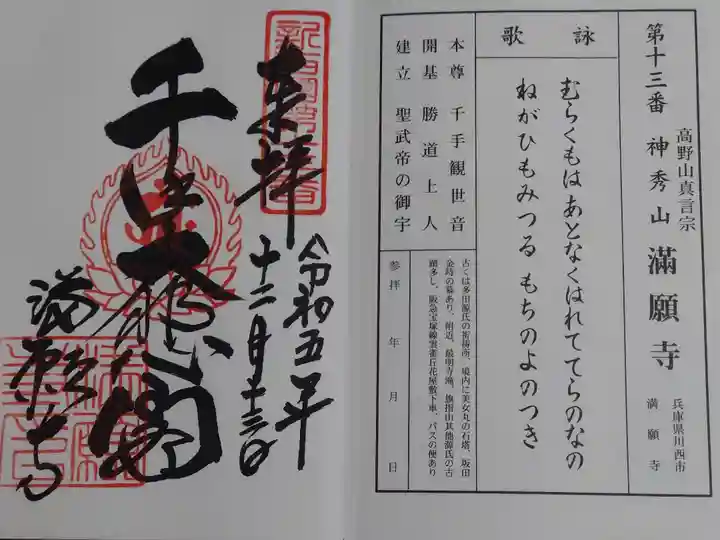 第十三番 神秀山 満願寺
高野山真言宗
兵庫県川西市
満願寺
詠歌
むらくもは あとなくはれて てらのなの
ねがひもみつる もちのよのつき
本尊 千手観世音
開基 勝道上人
建立 聖武帝の御宇
古くは多田源氏の祈祷所、境内に美女丸の石塔、坂田
金時の墓あり、附近、最明寺滝、旗指山其他源氏の古
蹟多し、阪急宝塚線雲雀丘花屋敷下車、バスの便あり
参拝 年 月 日
奉拝
令和五年
十二月十三日
満願寺